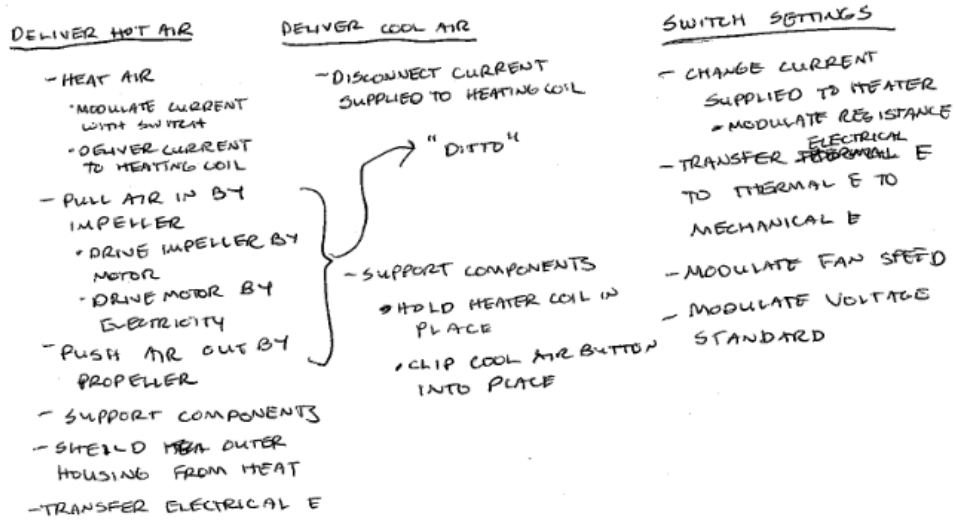 DELIVER HOT AIR
- HEAT AIR
• MODULATE CURRENT
WITH SWITCH
• DELIVER CURRENT
TO HEATING COIL
- PULL AIR IN BY
IMPELLER
• DRIVE IMPELLER BY
MOTOR
• DRIVE MOTOR BY
ELECTRICITY
- PUSH AIR OUT BY
PROPELLER
- SUPPORT COMPONENTS
- SHEILD OUTER
HOUSING FROM HEAT
- TRANSFER ELECTRICAL E
DELIVER COOL AIR
- DISCONNECT CURRENT
SUPPLIED TO HEATING COIL
"DITTO"
- SUPPORT COMPONENTS
• HOLD HEATER COIL IN
PLACE
• CLIP COOL AIR BUTTON
INTO PLACE
SWITCH SETTINGS
- CHANGE CURRENT
SUPPLIED TO HEATER
• MODULATE RESISTANCE
ELECTRICAL
- TRANSFER THERMAL E
TO THERMAL E TO
MECHANICAL E
- MODULATE FAN SPEED
- MODULATE VOLTAGE
STANDARD